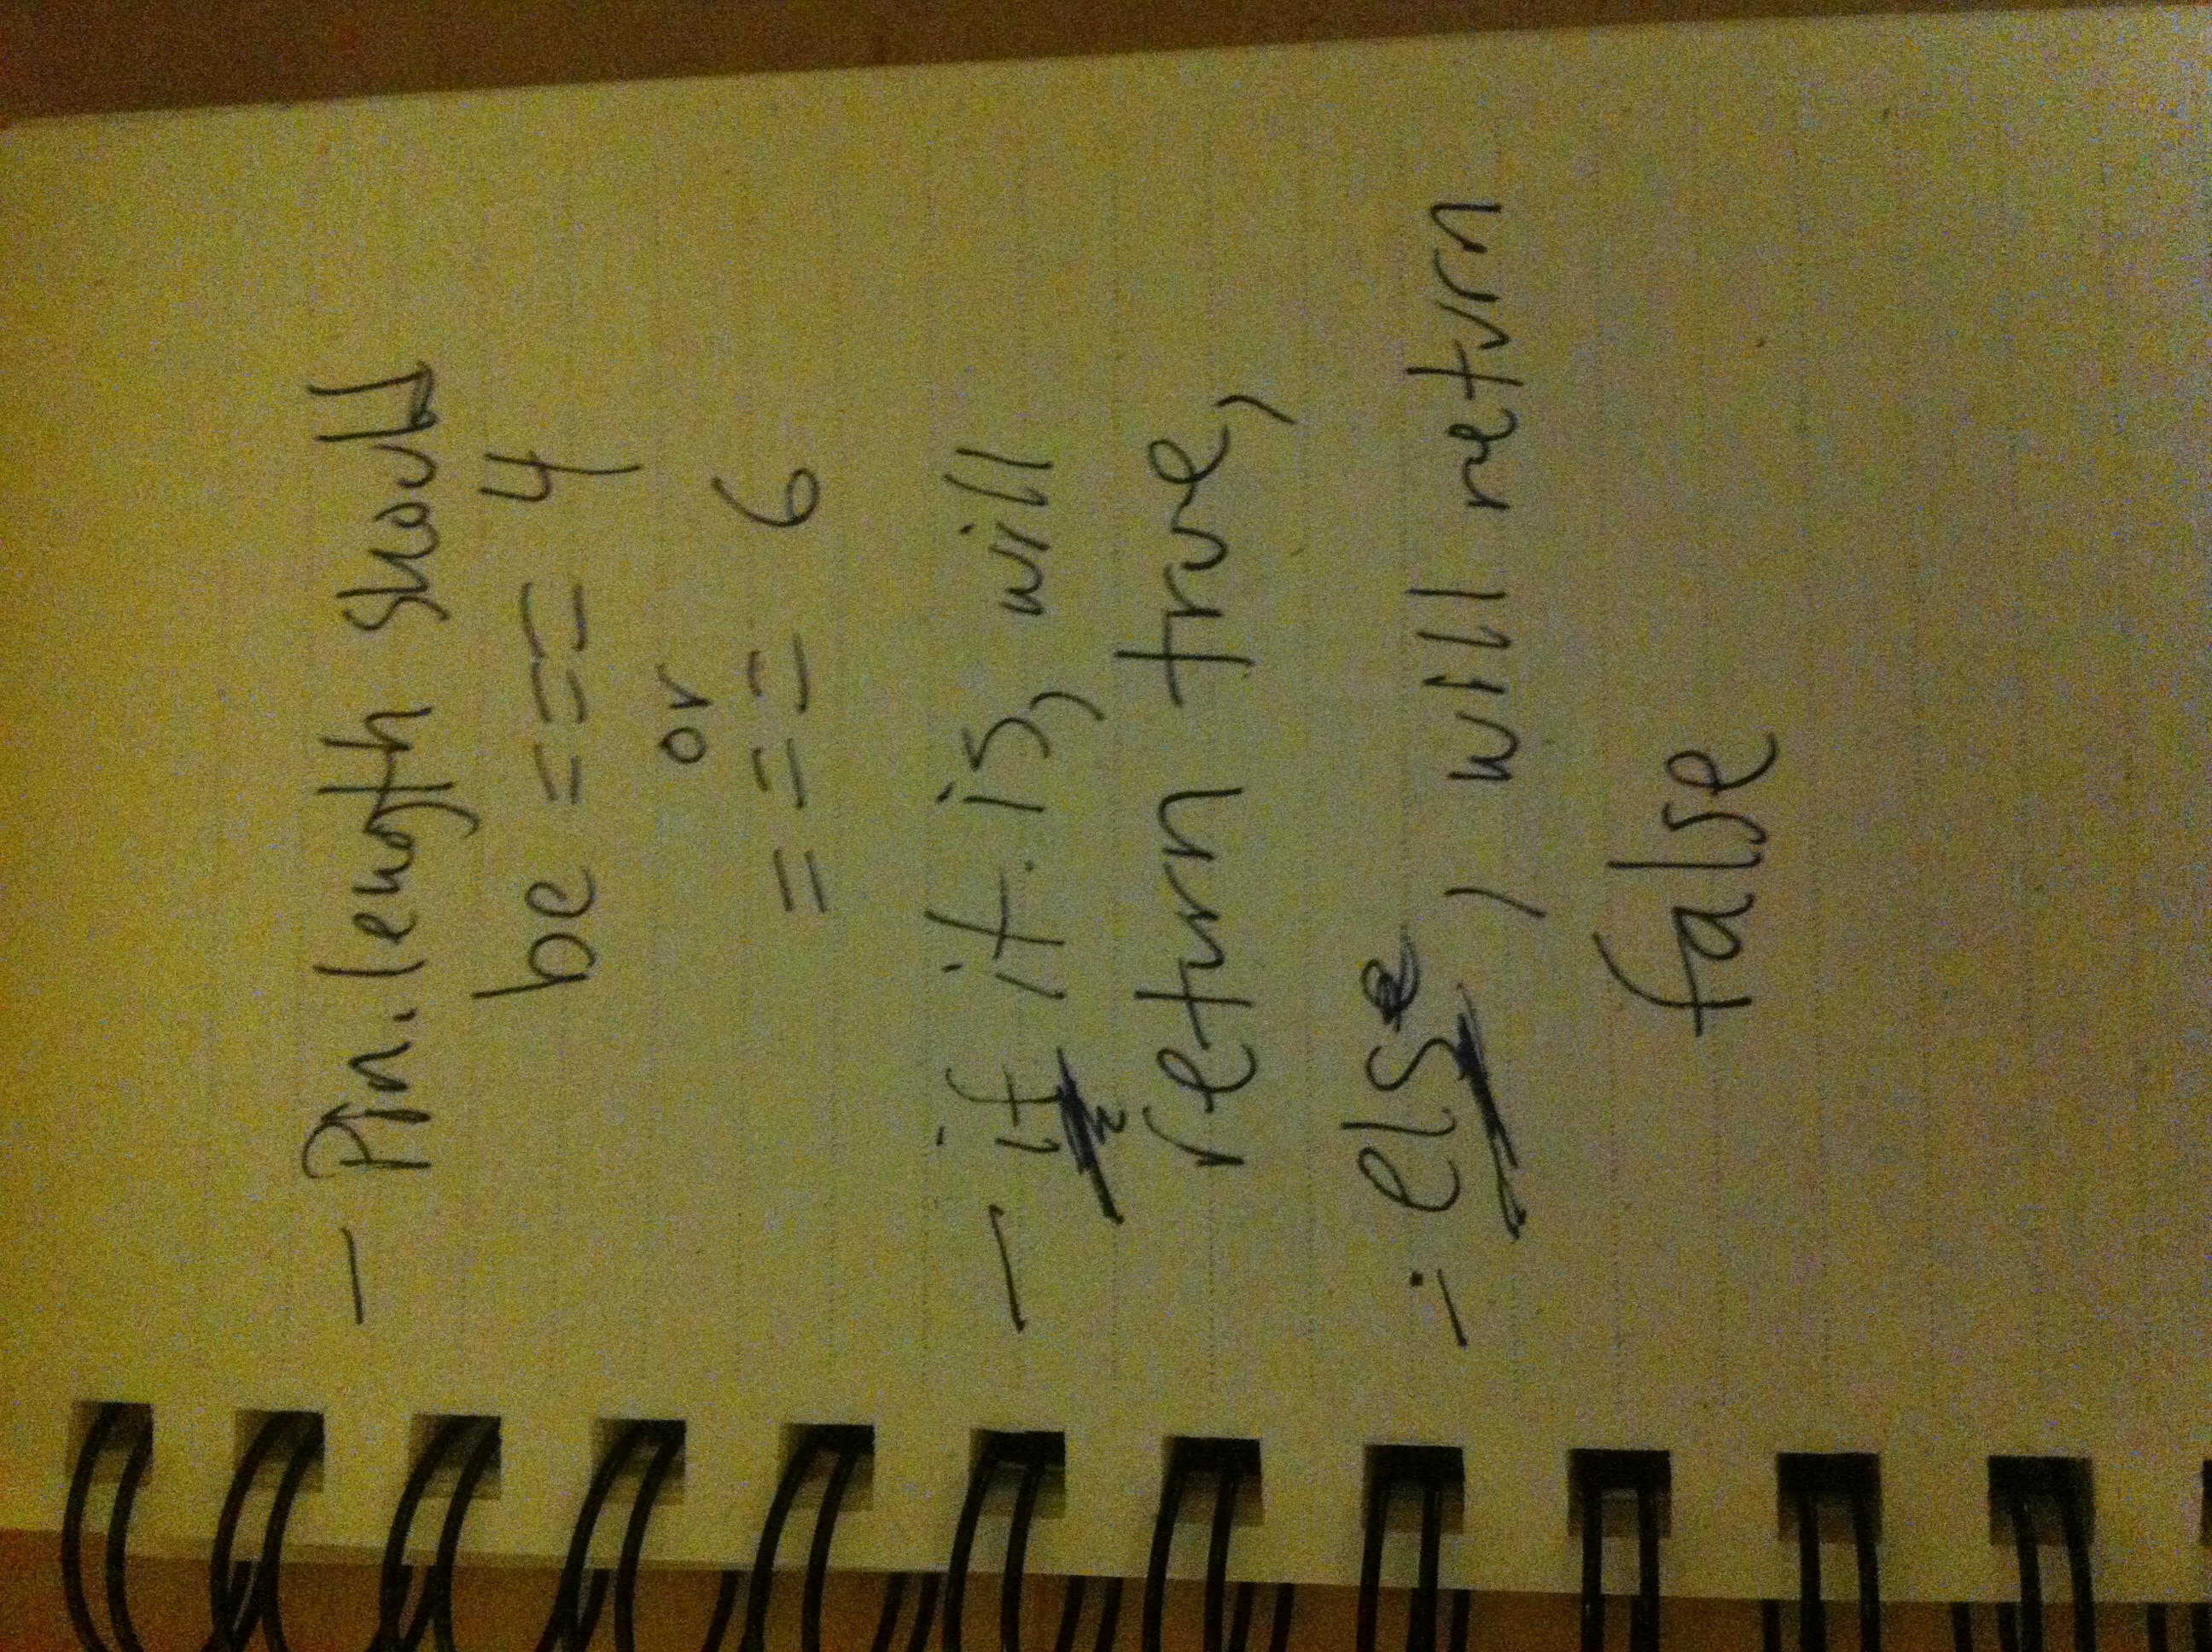 - Pin.length should
be === 4
or
=== 6
- if it is, will
return true,
- else, will return
false